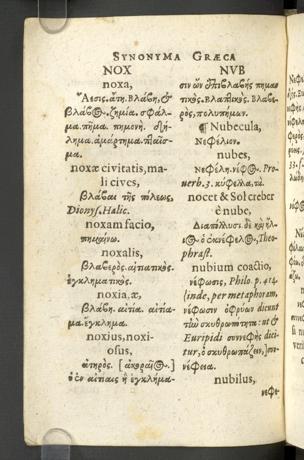 SYNONYMA GRÆCA
NOX
noxa,
Ἄεσις. ἄτη. βλάβη, &
βλάβος. ζημία. σφάλ-
μα. πῆμα. πημονή.
λημα. ἁμάρτημα. πταῖσ-
μα.
noxæ civitatis, ma-
li cives,
βλάβαι τῆς πόλεως,
Dionys. Halic.
noxam facio,
πημαίνω.
noxalis,
βλαβερὸς. αἰτιατικὸς.
ἐγκληματικὸς.
noxia, æ,
βλάβη. αἰτία. αἰτία-
μα. ἔγκλημα.
noxius, noxi-
osus,
ἀτηρὸς.
ὁ ἐν αἰτίαις ἢ ἐγκλήμα-
NVB
σιν ὤν. ἐπιβλαβὴς. πημαν
τικὸς. βλαπτικὸς. βλαβε-
ρὸς. πολυπήμων.
¶ Nubecula,
Νεφέλιον.
nubes,
Νεφέλη. νέφος. Pro-
uerb. 3.
nocet & Sol creber
è nube,
ἥλι-
ος ὁ ἐκνέφελος, Theo-
phrast.
nubium coactio,
νέφωσις, Philo. p. 414.
(inde, per metaphoram,
νέφωσιν ὀφρύων dicunt
τὴν σκυθρωπότητα: ut &
Euripidi συννεφὴς dici-
tur, ὁ σκυθρωπάζων,) συν-
νέφεια.
nubilus,
νεφε-